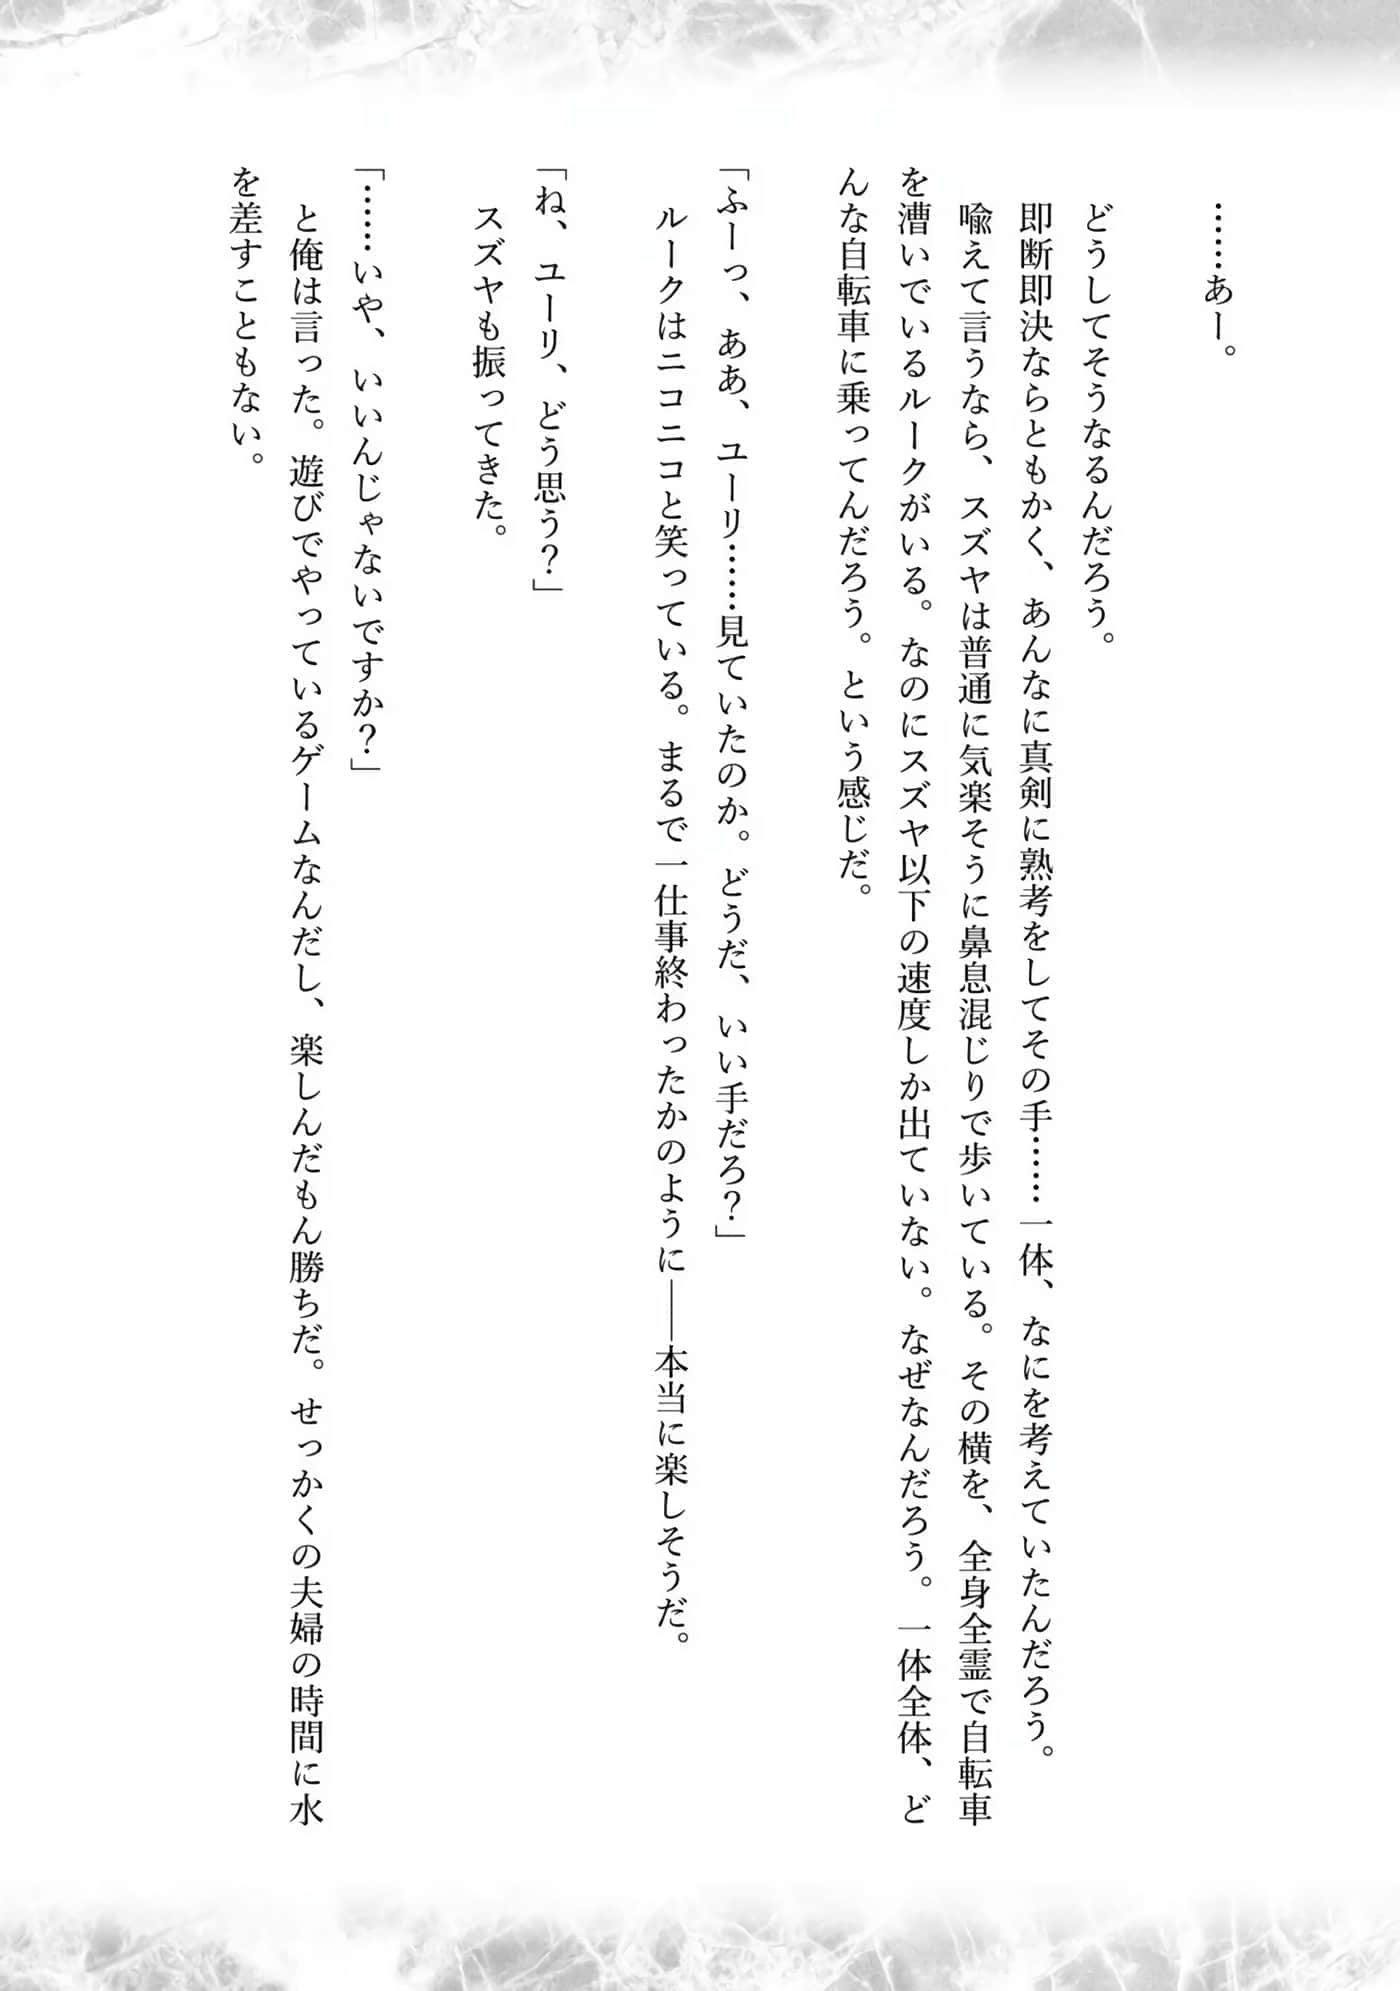 ……あー。
どうしてそうなるんだろう。
即断即決ならともかく、あんなに真剣に熟考をしてその手……一体、なにを考えていたんだろう。
喩えて言うなら、スズヤは普通に気楽そうに鼻息混じりで歩いている。その横を、全身全霊で自転車
を漕いでいるルークがいる。なのにスズヤ以下の速度しか出ていない。なぜなんだろう。一体全体、ど
んな自転車に乗ってんだろう。という感じだ。
「ふーっ、ああ、ユーリ……見ていたのか。どうだ、いい手だろ？」
ルークはニコニコと笑っている。まるで一仕事終わったかのように――本当に楽しそうだ。
「ね、ユーリ、どう思う？」
スズヤも振ってきた。
「……いや、いいんじゃないですか？」
と俺は言った。遊びでやっているゲームなんだし、楽しんだもん勝ちだ。せっかくの夫婦の時間に水
を差すこともない。